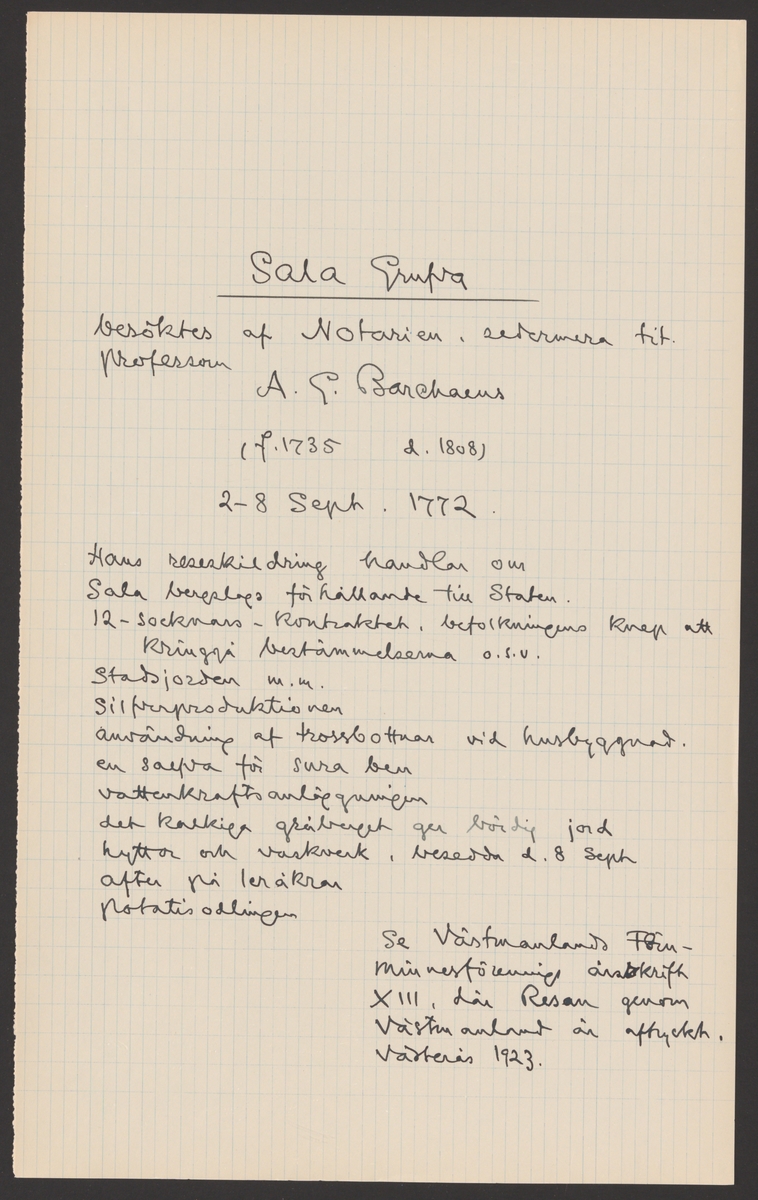 Sala Grufva
besöktes af Notarien, sedermera tit.
professorn
A. G. Barchaeus
(f. 1735 d. 1808)
2-8 Sept. 1772.
Hans reseskildring handlar om
Sala bergslags förhållande till Staten.
12-socknars-kontraktet, befolkningens knep att
kringgå bestämmelserna o.s.v.
Stadsjorden m.m.
Silfverproduktionen
användning af trossbottnar vid husbyggnad.
en salfva för sura ben
vattenkraftsanläggningen
det kalkiga gråberget ger bördig jord
hyttor och vaskverk, besedda d. 8 Sept
after på leråkrar
potatisodlingen
Se Västmanlands Forn-
minnesförenings årsskrift
XIII, där Resan genom
Västmanland är aftryckt.
Västerås 1923.